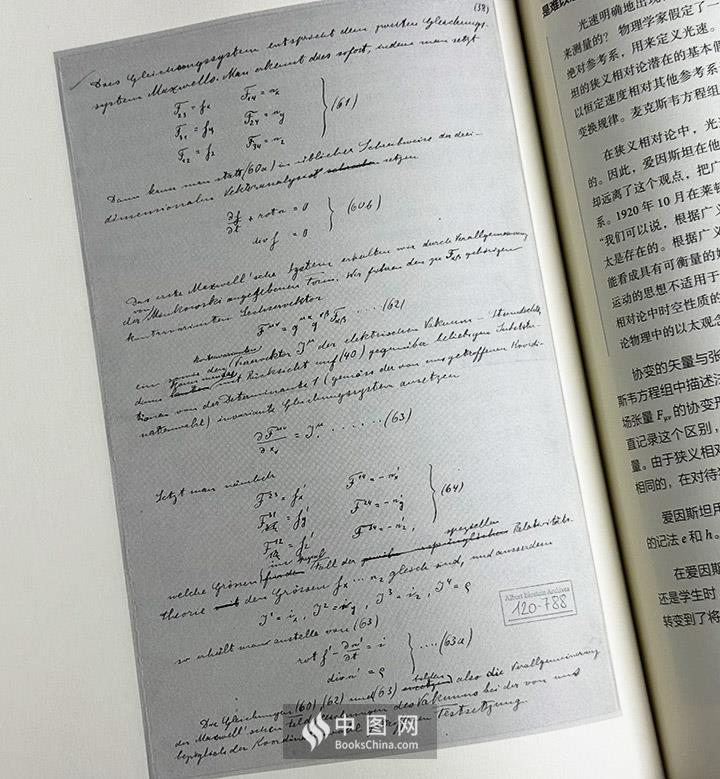 (38)
Dies Gleichungssystem entspricht dem zweiten Gleichungs-
system Maxwells. Man erkennt dies sofort, indem man setzt
F₂₃ = fx F₁₄ = nx
F₃₁ = fy F₂₄ = ny } (61)
F₁₂ = fz F₃₄ = nz
Dann kann man statt (60a) in üblicher Schreibweise der drei-
dimensionalen Vektoranalyse setzen
∂f/∂t + rot n = 0
div f = 0 } (60b)
Das erste Maxwell'sche System erhalten wir durch Verallgemeinerung
der von Minkowski angegebenen Form. Wir führen den zu Fαβ gehörigen
kontravarianten Sechservektor
F^μν = g^μα g^νβ Fαβ .... (62)
ein sowie den kontravarianten Vierervektor J^μ der elektrischen Vakuum-Stromdichte,
dann kann man mit Rücksicht auf (40) gegenüber beliebigen Substitu-
tionen von der Determinante 1 (gemäss der von uns getroffenen Koordi-
natenwahl) invariante Gleichungssystem ansetzen
∂F^μν/∂xν = J^μ . . . . . . (63)
Setzt man nämlich
F²³ = f'x F¹⁴ = -n'x
F³¹ = f'y F²⁴ = -n'y } (64)
F¹² = f'z F³⁴ = -n'z,
welche Grössen im Spezialfall der speziellen Relativitäts-
theorie den Grössen fx ... nz gleich sind, und ausserdem
J¹ = ix, J² = iy, J³ = iz, J⁴ = ϱ
so erhält man anstelle von (63)
rot f' - ∂n'/∂t = i
div n' = ϱ } .... (63a)
Die Gleichungen (60), (62) und (63) bilden also die Verallgemeinerung
der Maxwell'schen Feldgleichungen des Vakuums bei der von uns
bezüglich der Koordinatenwahl getroffenen Festsetzung.
Albert Einstein Archives
120-788
中图网
BooksChina.com
是难以
光速明确地出现
来测量的？物理学家假定了一
绝对参考系，用来定义光速。
坦的狭义相对论潜在的基本假
以恒定速度相对其他参考系
变换规律。麦克斯韦方程组
在狭义相对论中，光
的。因此，爱因斯坦在他
却远离了这个观点，把广
系。1920 年 10 月在莱顿
“我们可以说，根据广义
太是存在的。根据广义
能看成具有可衡量的
运动的思想不适用于
相对论中时空性质的
论物理中的以太观念
协变的矢量与
斯韦方程组中描述
场张量 Fμν 的协变
直记录这个区别，
量。由于狭义相对
相同的，在对待
爱因斯坦用
的记法 e 和 h。
在爱因斯
还是学生时
转变到了将